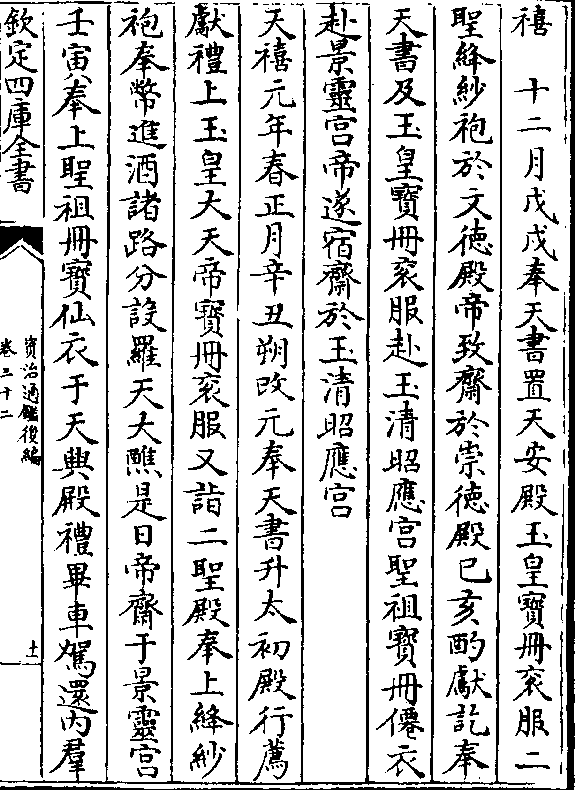 禧　十二月戊戌奉天書置天安殿玉皇寶冊衮服二
聖絳紗袍於文徳殿帝致齋於崇徳殿已亥酌獻訖奉
天書及玉皇寶冊衮服赴玉清昭應宫聖祖寶冊僊衣
赴景靈宫帝遂宿齋於玉清昭應宫
天禧元年春正月辛丑朔改元奉天書升太初殿行薦
獻禮上玉皇大天帝寶冊衮服又詣二聖殿奉上絳紗
袍奉幣進酒諸路分設羅天大醮是日帝齋于景靈宫
壬寅奉上聖祖冊寶仙衣于天興殿禮畢車駕還内羣
欽定四庫全書
資治通鑑後編
卷三十二
十一